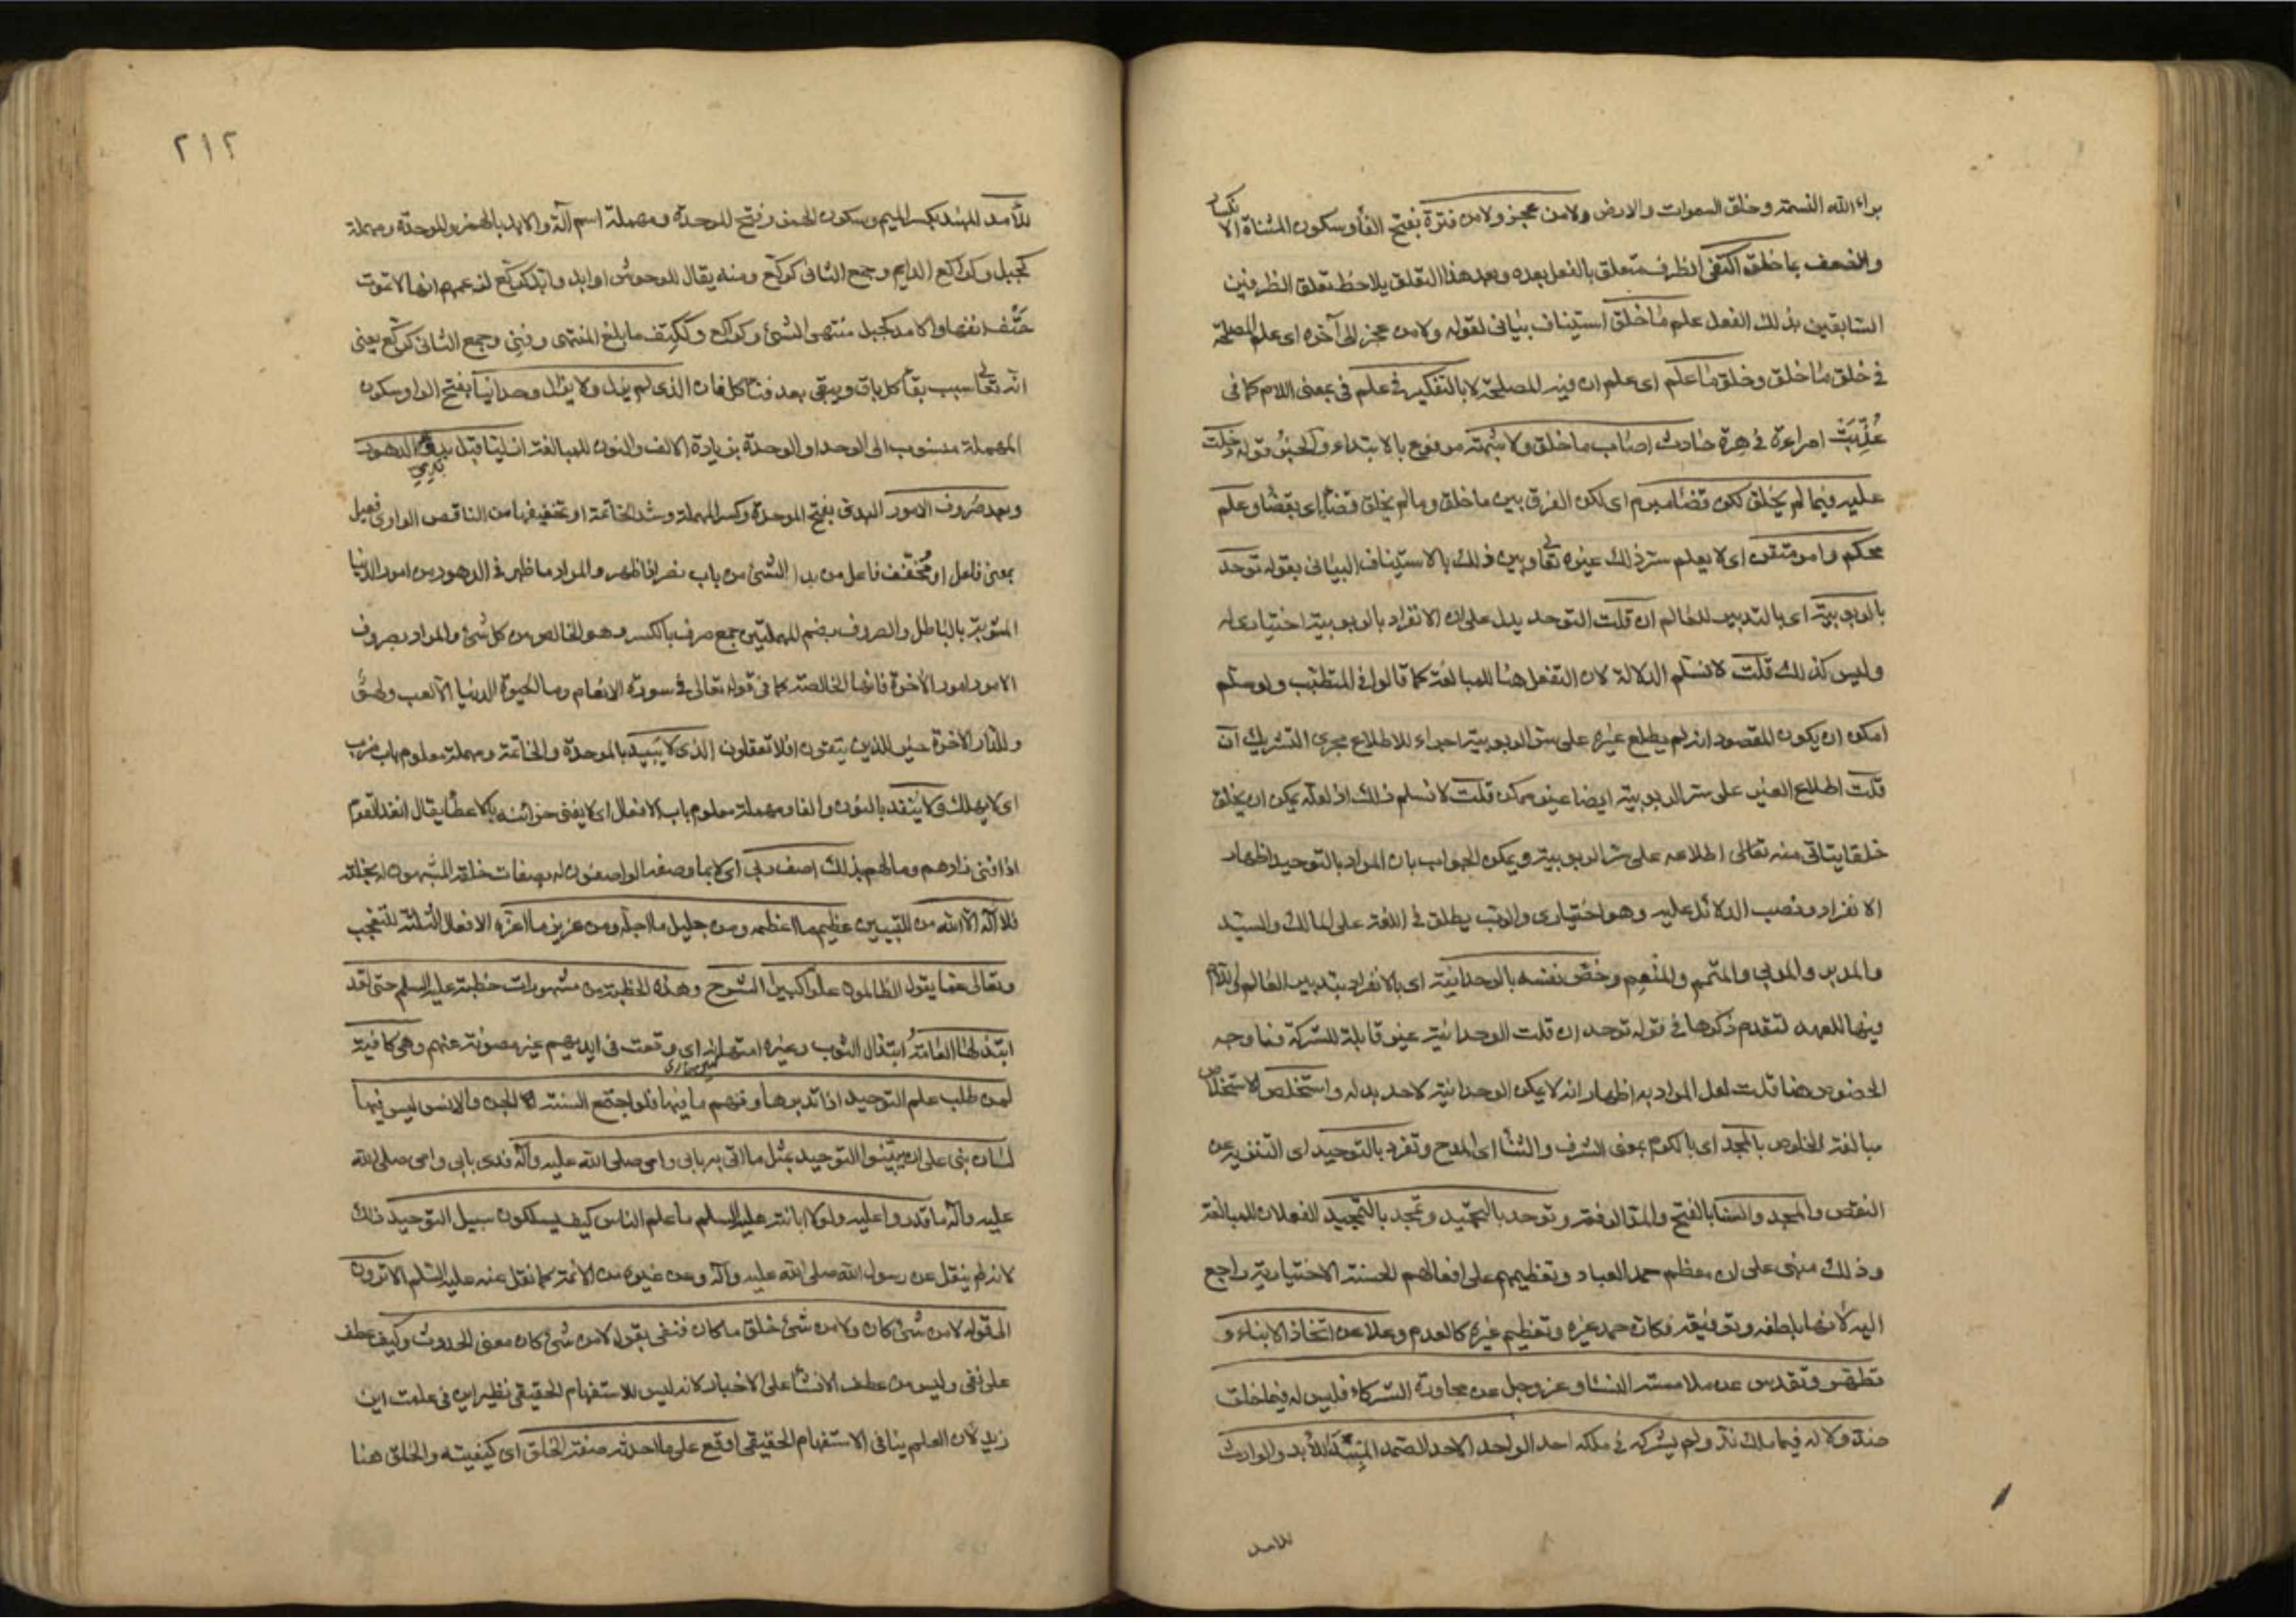 براء الله النسمة وخلق السموات والارض ولا من عجز ولا من فترة بفتح الفاء وسكون المثناة الانكسار
والضعف بما خلق اكتفى الظرف متعلق بالفعل بعده وبعد هذا التعلق يلاحظ تعلق الظرفين
السابقين بذلك الفعل علم ما خلق استيناف بياني لقوله ولا من عجز الى آخره اى علم المصلحة
في خلق ما خلق وخلق ما علم اى علم ان فيه المصلحة لا بالتفكير في علم في بمعنى اللام كما في
عُذِّبَتْ امراءة في هرة حادث اصاب ما خلق ولا شبهة مرفوع بالابتداء والخبر قوله دخلت
عليه فيما لم يخلق لكن قضاء مبرم اى لكن الفرق بين ما خلق وما لم يخلق قضاء اى بقضاء وعلم
محكم وامر متقن اى لا يعلم سر ذلك غيره تعالى وبين ذلك بالاستيناف البياني بقوله توحد
بالربوبية اى بالتدبير للعالم ان قلت التوحد يدل على ان الانفراد بالربوبية اختيارى له
وليس كذلك قلت لا نسلم الدلالة لان التفعل هنا للمبالغة كما قالوا في المتطبب ولو سلم
امكن ان يكون المقصود انه لم يطلع غيره على سر الربوبية اجراء للاطلاع مجرى التشريك ان
قلت اطلاع الغير على سر الربوبية ايضا غير ممكن قلت لا نسلم ذلك اذ لعله يمكن ان يخلق
خلقا يتاتى منه تعالى اطلاعه على سر الربوبية ويمكن الجواب بان المراد بالتوحيد اظهار
الانفراد ونصب الدلائل عليه وهو اختيارى والرب يطلق في اللغة على المالك والسيد
والمدبر والمربي والمتمم والمنعم وخص نفسه بالوحدانية اى بالانفراد بتدبير العالم واللام
فيها للعهد لتقدم ذكرها في قوله توحد ان قلت الوحدانية غير قابلة للشركة فما وجه
الخصوص هنا قلت لعل المراد به اظهار انه لا يمكن الوحدانية لاحد بدله واستخلص الاستخلاص
مبالغة الخلوص بالمجد اى بالكرم بمعنى الشرف والثناء اى المدح وتفرد بالتوحيد اى التنزيه عن
النقص والمجد والسنا بالفتح والمد الرفعة وتوحد بالتحميد وتمجد بالتمجيد الفعلان للمبالغة
وذلك مبنى على ان معظم حمد العباد وتعظيمهم على افعالهم الحسنة الاختيارية راجع
اليه لانها بلطفه وتوفيقه فكان حمد غيره وتعظيم غيره كالعدم وعلا عن اتخاذ الابناء و
تطهر وتقدس عن ملامسة النساء وعز وجل عن مجاورة الشركاء فليس له فيما خلق
ضد ولا له فيما ملك ند ولم يشركه في ملكه احد الواحد الاحد الصمد المبيد للابد والوارث
للامد
٢١٢
للامد المئبد بكسر الميم وسكون الهمز وفتح الموحدة ومهملة اسم آلة والابد بالهمز والموحدة ومهملة
كجبل وكراكع الدايم وجمع الثاني كركّع ومنه يقال للوحوش اوابد وابّد كركّع لزعمهم انها لا تموت
حتف انفها والامد كجبل منتهى الشئ وكراكع وككتف ما بلغ المنتهى وفني وجمع الثاني كركع يعنى
انه تعالى سبب بقاء كل باق ويبقى بعد فناء كل فان الذى لم يزل ولا يزال وحدانيا بفتح الواو وسكون
المهملة منسوب الى الوحد او الوحدة بزيادة الالف والنون للمبالغة ازليا قبل بدئ الدهور
وبعد صروف الامور البدى بفتح الموحدة وكسر المهملة وشد الخاتمة او تخفيفها من الناقص الواوى فعيل
بمعنى فاعل او مخفف فاعل من بدا الشئ من باب نصر اذا ظهر والمراد ما ظهر في الدهور من امور الدنيا
المشوبة بالباطل والصروف بضم المهملتين جمع صرف بالكسر وهو الخالص من كل شئ والمراد بصروف
الامور امور الآخرة فانها الخالصة كما في قوله تعالى في سورة الانعام وما الحيوة الدنيا الا لعب ولهو
وللدار الآخرة خير للذين يتقون افلا تعقلون الذى لا يبيد بالموحدة والخاتمة ومهملة معلوم باب ضرب
اى لا يهلك ولا ينفد بالنون والفاء ومهملة معلوم باب الافعال اى لا يفنى خزائنه بالاعطاء يقال انفد القوم
اذا فنى زادهم ومالهم بذلك اصف ربي اى لا بما وصفه الواصفون له بصفات خلقه المشبهون له بخلقه
فلا آله الا الله من للتبيين عظيم ما اعظمه ومن جليل ما اجله ومن عزيز ما اعزه الافعال الثلثة للتعجب
وتعالى عما يقول الظالمون علوا كبيرا الشرح وهذه الخطبة من مشهورات خطبه عليه السلم حتى لقد
ابتذلها العامة ابتذال الثوب وغيره امتهانه اى وقعت في ايديهم غير مصونة عنهم وهى كافية
لمن طلب علم التوحيد اذا تدبرها وفهم ما فيها فلو اجتمع السنة الجن والانس ليس فيها
لسان نبى على ان يبينوا التوحيد بمثل ما اتى به بابي وامى صلى الله عليه وآله فدى بابي وامى صلى الله
عليه وآله ما قدروا عليه ولولا ابانته عليه السلم ما علم الناس كيف يسلكون سبيل التوحيد ذلك
لانه لم ينقل عن رسول الله صلى الله عليه وآله وعن غيره من الائمة كما نقل عنه عليه السلم الا ترون
الى قوله لا من شئ كان ولا من شئ خلق ما كان فنفى بقوله لا من شئ كان معنى الحدوث وكيف عطف
على نفى وليس من عطف الانشاء على الاخبار لانه ليس للاستفهام الحقيقى نظير اين في علمت اين
زيد لان العلم ينافي الاستفهام الحقيقى اوقع على ما احدثه صفة الخلق اى كيفيته والخلق هنا